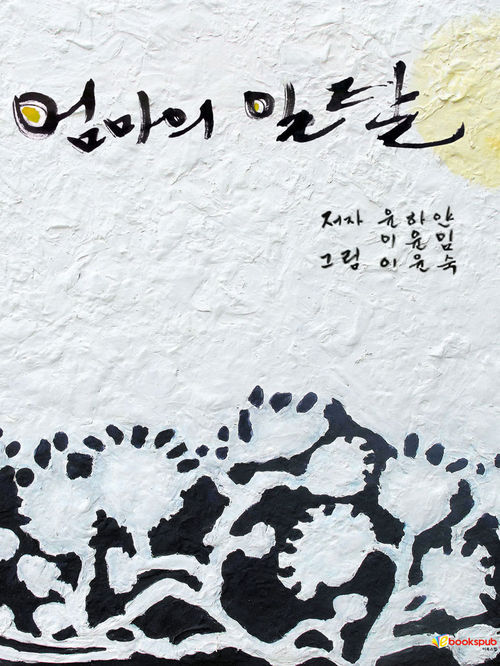 엄마의 일달
저자 윤하얀
이윤임
그림 이윤숙
bookspub